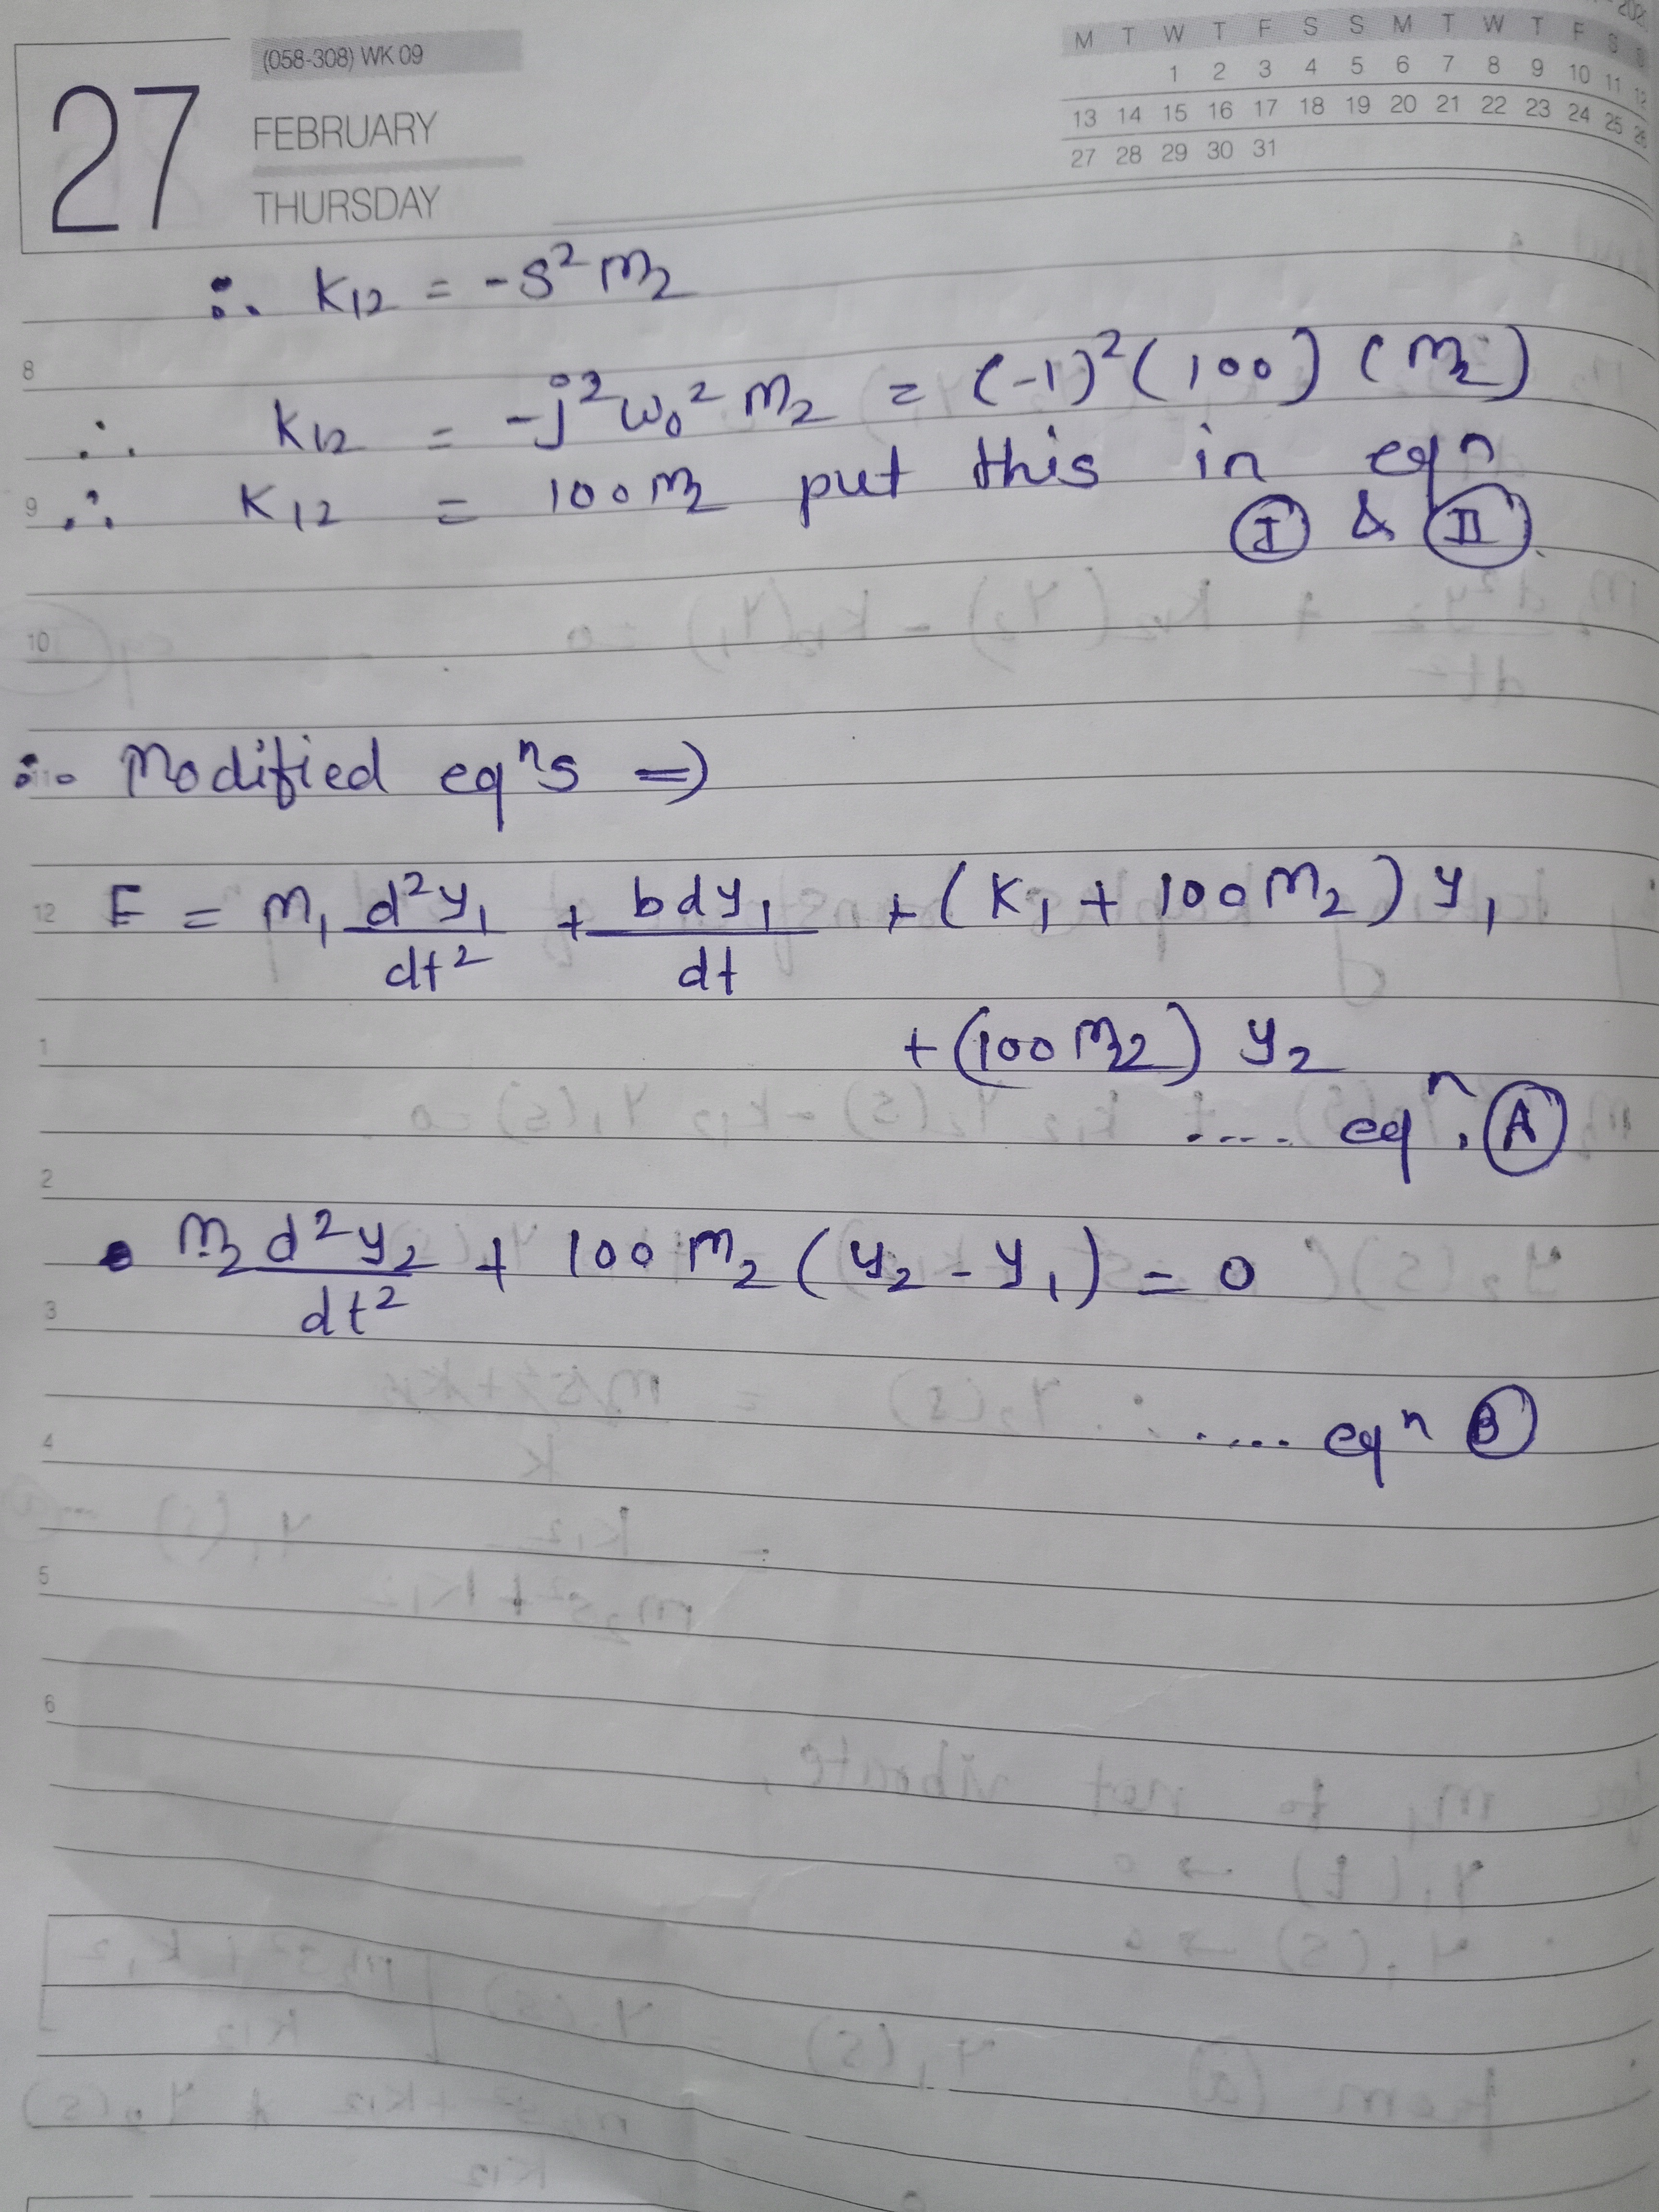 27
(058-308) WK 09
FEBRUARY
THURSDAY
M T W T F S S M T W T F S S
1 2 3 4 5 6 7 8 9 10 11 12
13 14 15 16 17 18 19 20 21 22 23 24 25 26
27 28 29 30 31
∴ K₁₂ = -S² m₂
8
∴ K₁₂ = -j² ω₀² m₂ = (-1)² (100) (m₂)
9
∴ K₁₂ = 100 m₂ put this in eqⁿ
Ⓘ & Ⓘ Ⓘ
10
11
∴ Modified eqⁿs ⇒
12
F = m₁ d²y₁/dt² + b dy₁/dt + (K₁ + 100 m₂) y₁
1
+ (100 m₂) y₂
.... eqⁿ. Ⓐ
2
• m₂ d²y₂/dt² + 100 m₂ (y₂ - y₁) = 0
3
..... eqⁿ Ⓑ
4
5
6